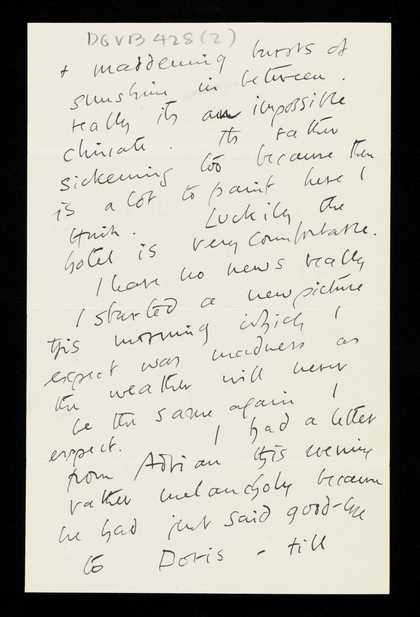 DGVB 428 (2)
+ maddening bursts of
sunshine in between.
really its an impossible
climate. Its rather
sickening too because there
is a lot to paint here I
think. Luckily the
hotel is very comfortable.
I have no news really
I started a new picture
this morning which I
expect was madness as
the weather will never
be the same again I
expect. I had a letter
from Adrian this evening
rather melancholy because
he had just said good-bye
to Doris - till